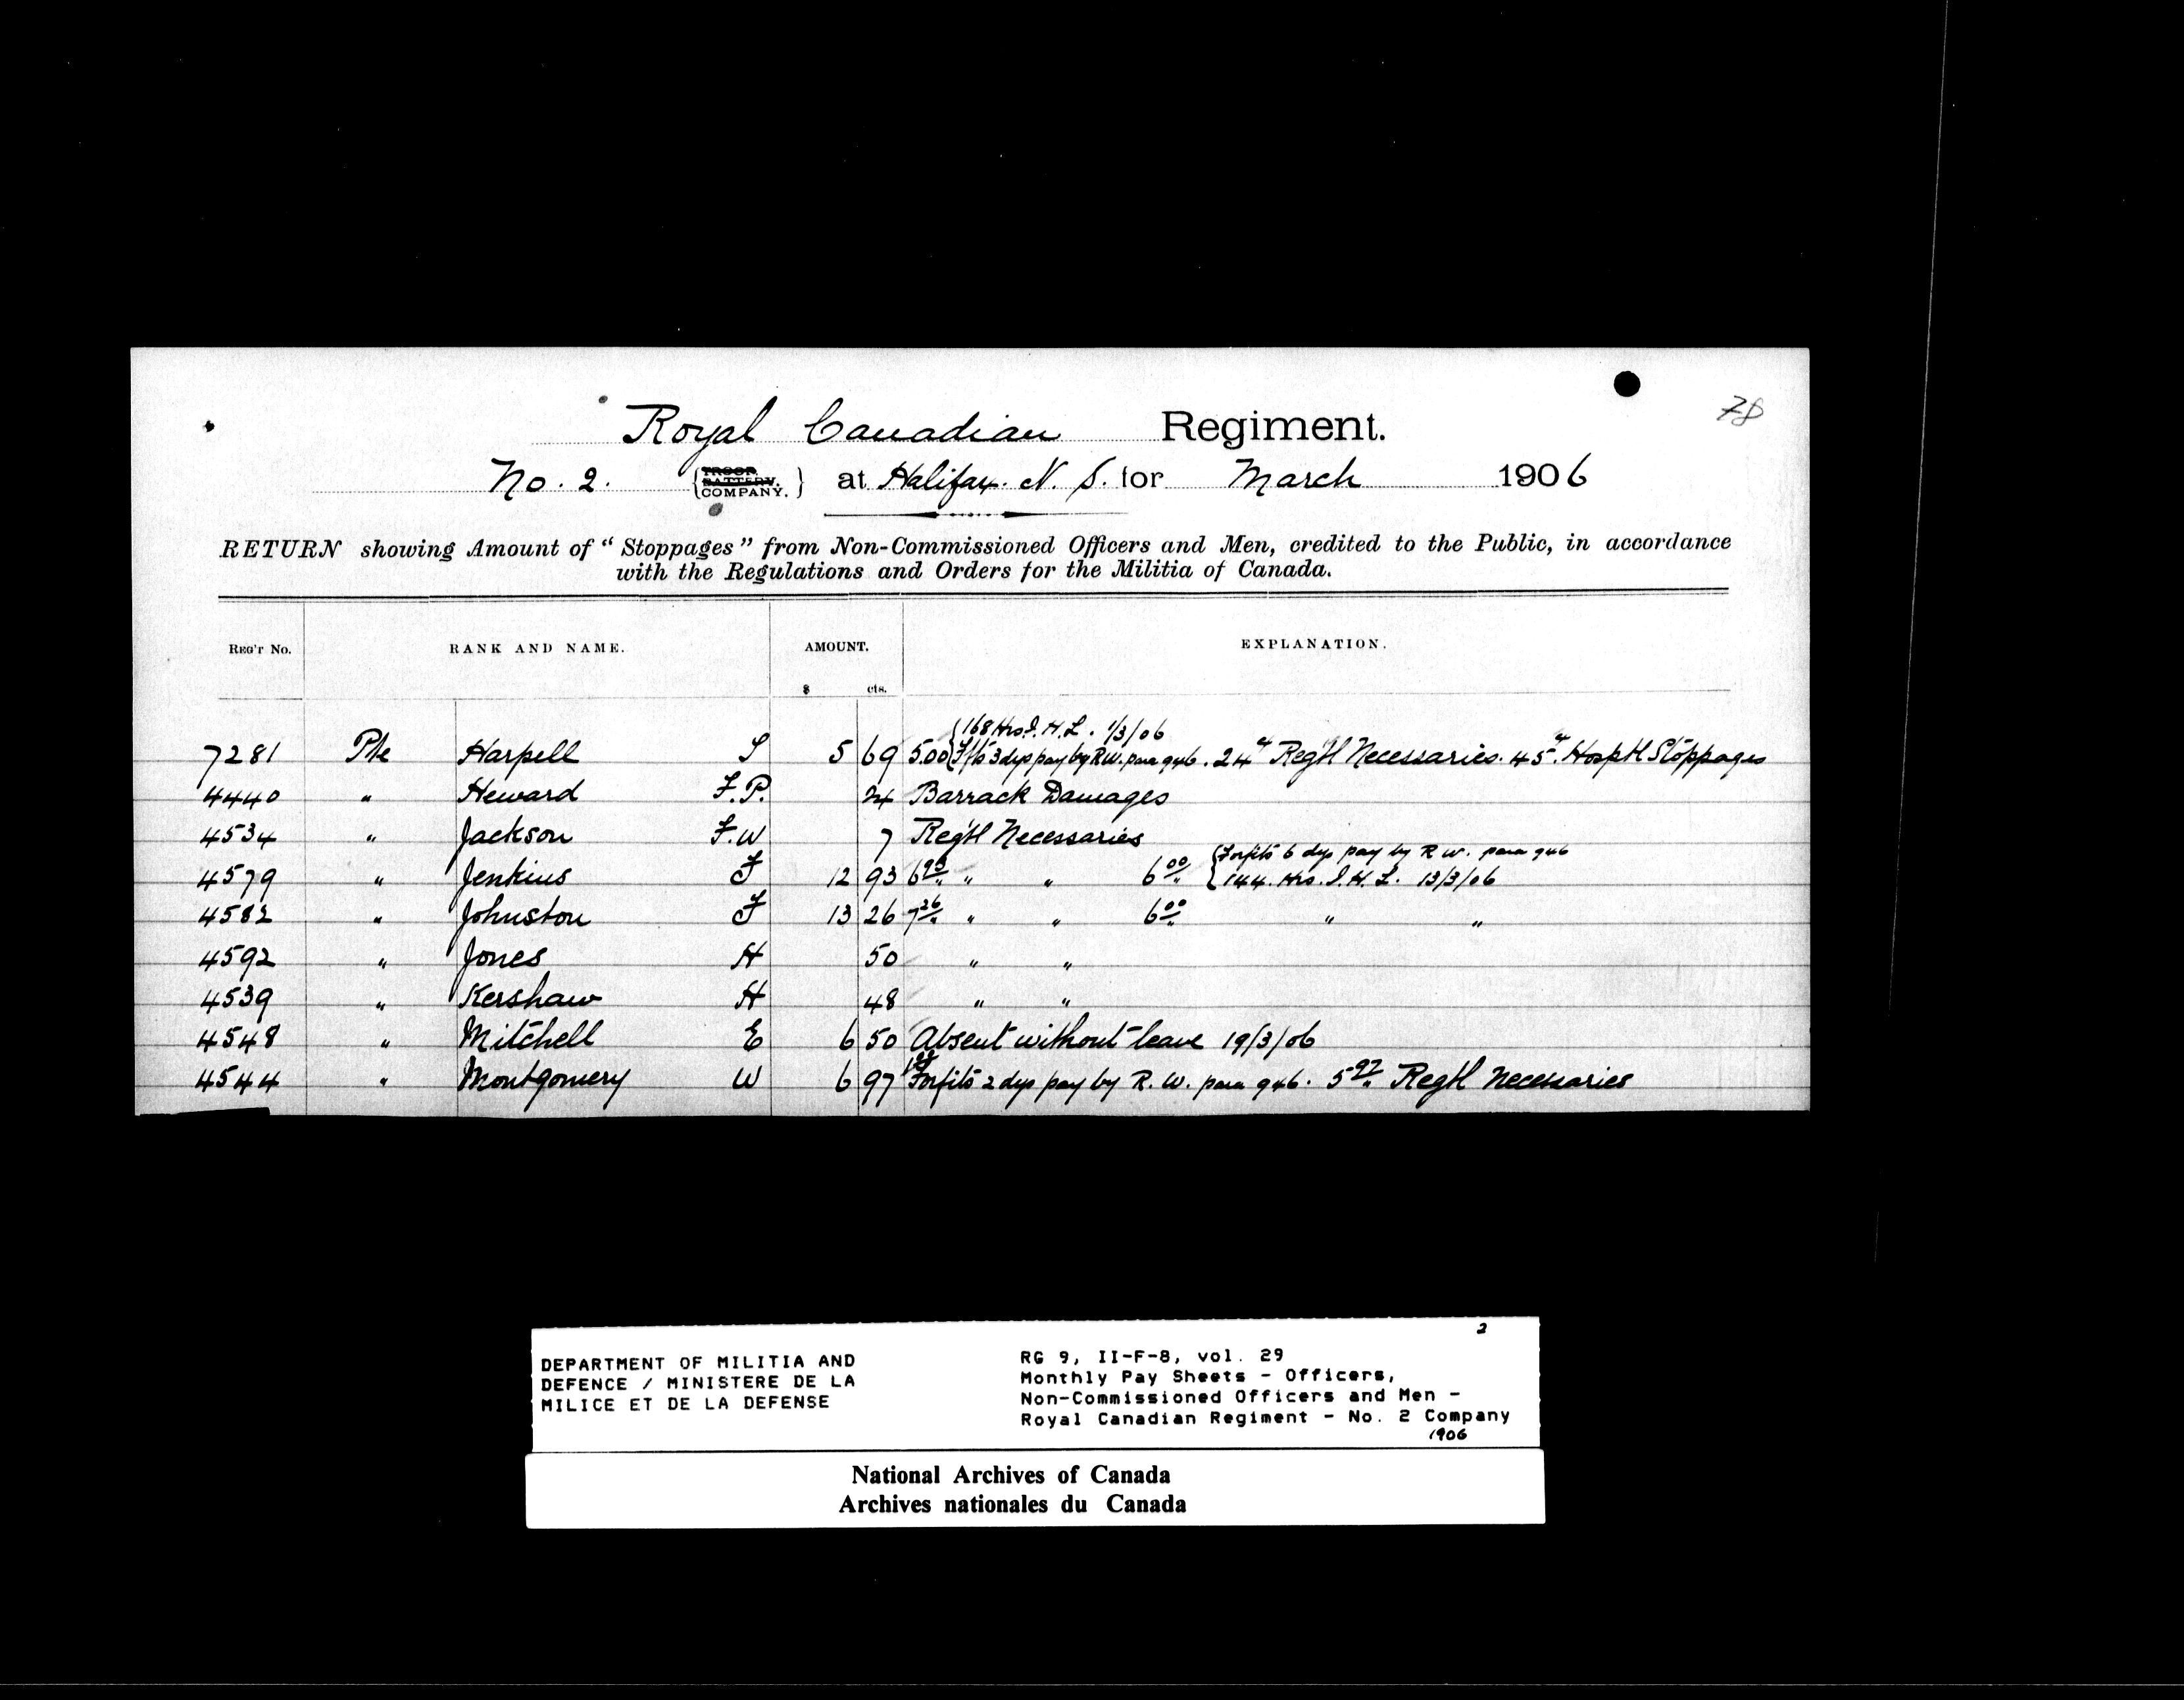 78
Royal Canadian Regiment.
No. 2. { TROOP. BATTERY. COMPANY. } at Halifax. N. S. for March 1906
RETURN showing Amount of “Stoppages” from Non-Commissioned Officers and Men, credited to the Public, in accordance
with the Regulations and Orders for the Militia of Canada.
REG'T No. RANK AND NAME. AMOUNT. EXPLANATION.
$ cts.
{168 Hrs. I. H. L. 1/3/06
7281 Pte Harpell S 5 69 5.00 {Ffts 3 dys pay by R.W. para 946. 24 cts Reg'tl Necessaries. 45 cts. Hosp'tl Stoppages
4440 " Heward F.P. 24 Barrack Damages
4534 " Jackson F.W 7 Reg'tl Necessaries
{Forfits 6 dys pay by R W. para 946
4579 " Jenkins F 12 93 6 93 " " 6 00 {144. Hrs. I. H. L. 13/3/06
4582 " Johnston F 13 26 7 26 " " 6 00 " "
4592 " Jones H 50 " "
4539 " Kershaw H 48 " "
4548 " Mitchell E 6 50 Absent without leave 19/3/06
4544 " Montgomery W 6 97 1 00 Forfits 2 dys pay by R. W. para 946. 5 97 Reg'tl Necessaries
2
DEPARTMENT OF MILITIA AND
DEFENCE / MINISTERE DE LA
MILICE ET DE LA DEFENSE
RG 9, II-F-8, vol. 29
Monthly Pay Sheets - Officers,
Non-Commissioned Officers and Men -
Royal Canadian Regiment - No. 2 Company
1906
National Archives of Canada
Archives nationales du Canada